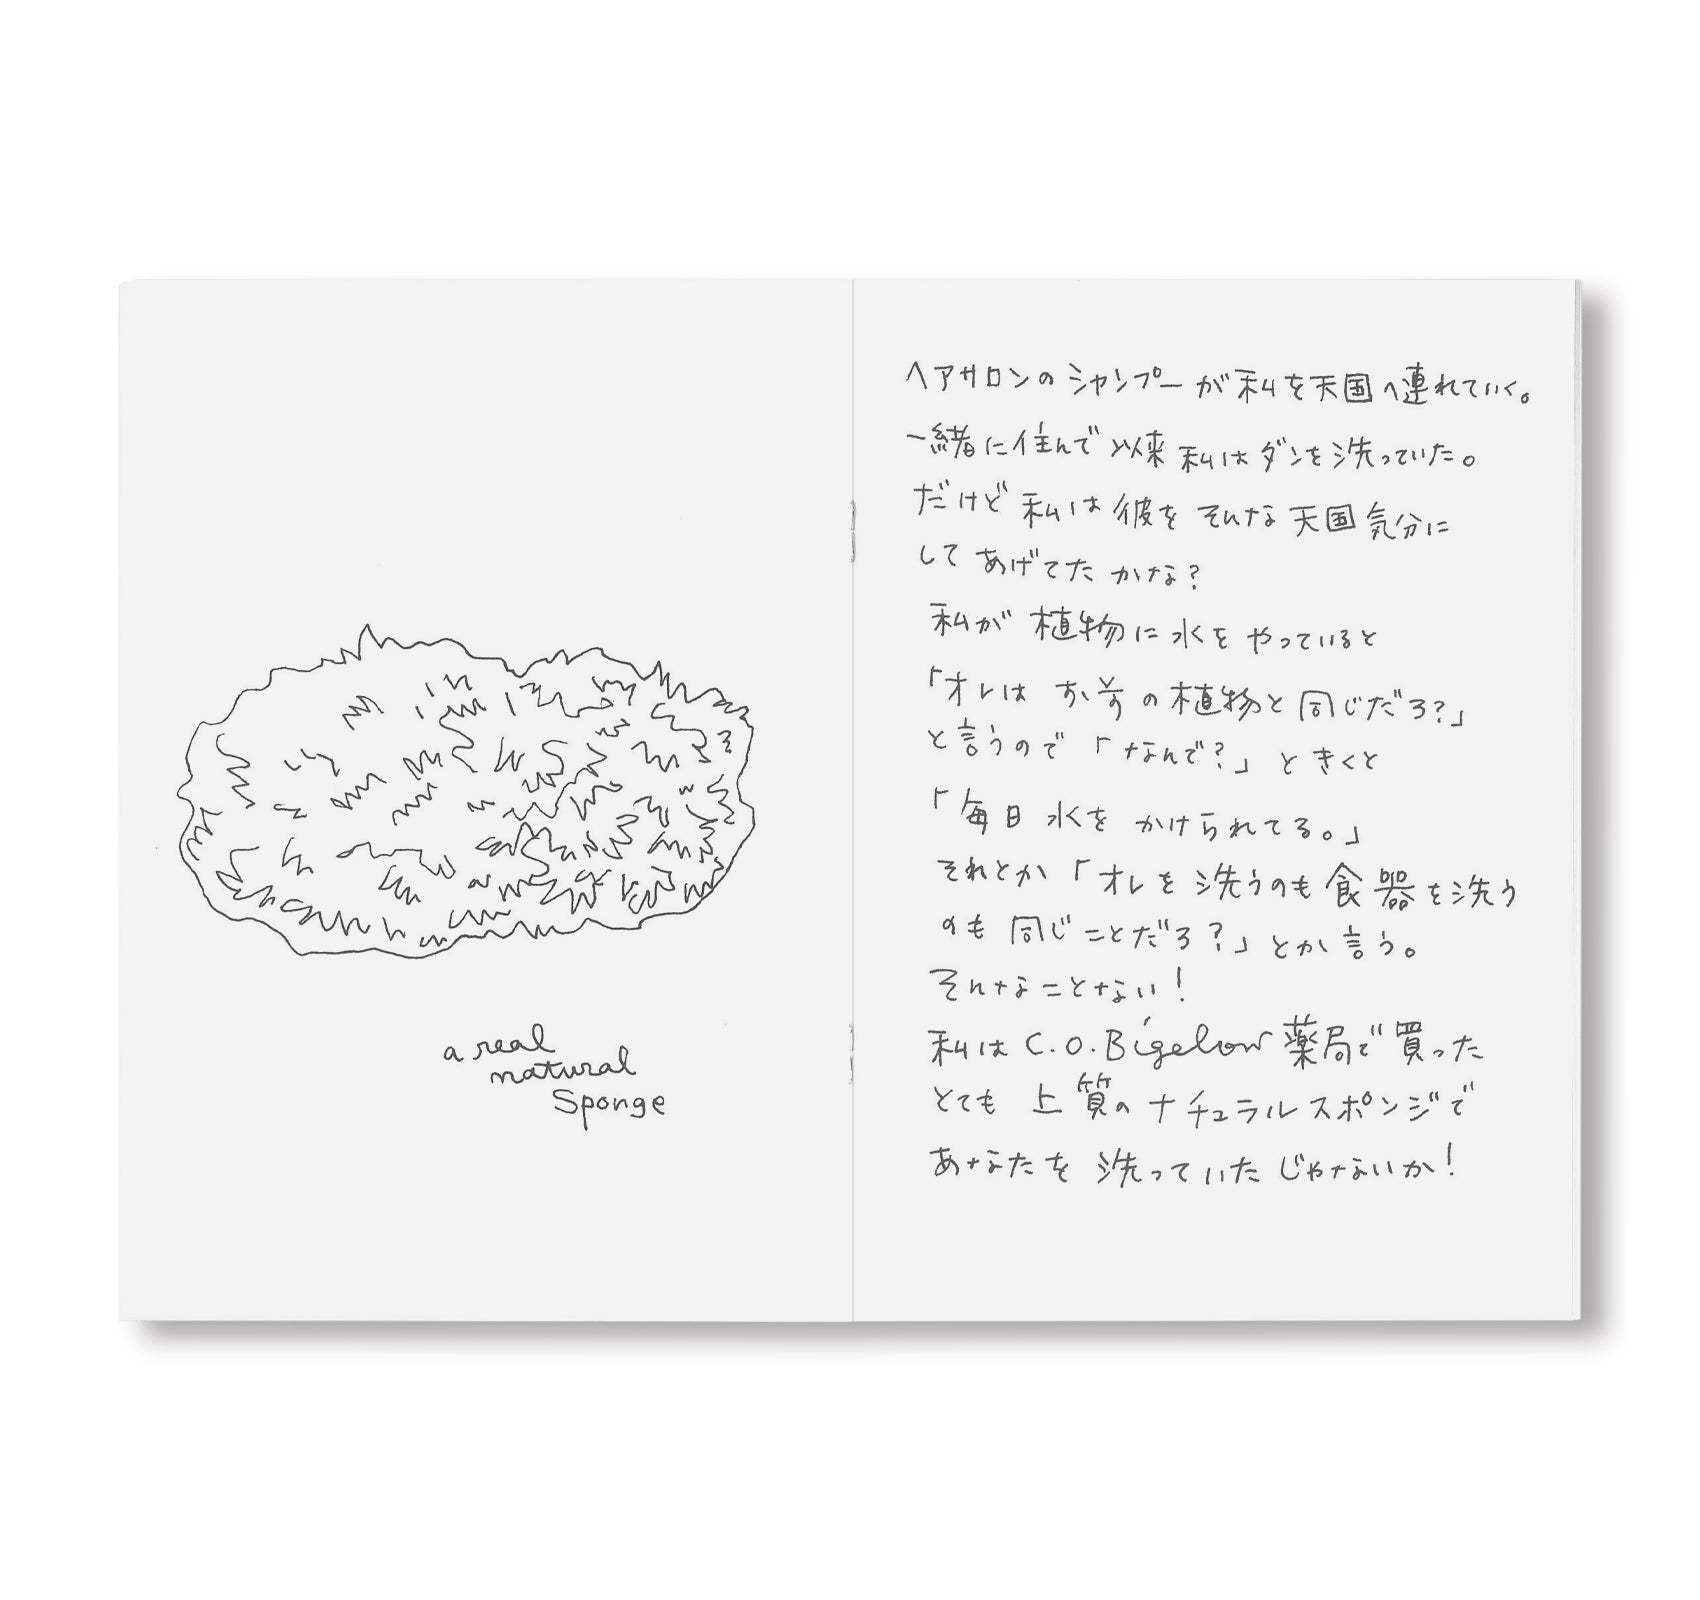 a real
natural
Sponge
ヘアサロンのシャンプーが私を天国へ連れていく。
一緒に住んで以来私はダンを洗っていた。
だけど私は彼をそんな天国気分に
してあげてたかな?
私が植物に水をやっていると
「オレはお前の植物と同じだろ?」
と言うので「なんで?」ときくと
「毎日水をかけられてる。」
それとか「オレを洗うのも食器を洗う
のも同じことだろ?」とか言う。
そんなことない!
私はC.O.Bigelow薬局で買った
とても上質のナチュラルスポンジで
あなたを洗っていたじゃないか!